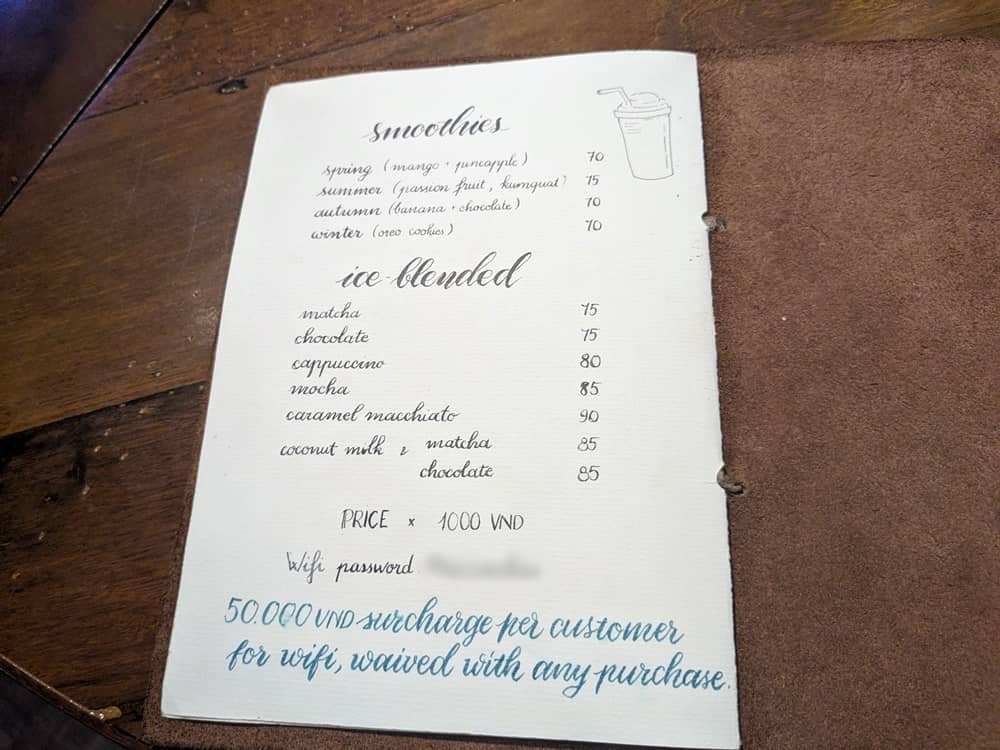 smoothies
spring (mango + pineapple) 70
summer (passion fruit, kumquat) 75
autumn (banana + chocolate) 70
winter (oreo cookies) 70
ice-blended
matcha 75
chocolate 75
cappuccino 80
mocha 85
caramel macchiato 90
coconut milk & matcha 85
chocolate 85
PRICE x 1000 VND
Wifi password
50.000 VND surcharge per customer
for wifi, waived with any purchase.